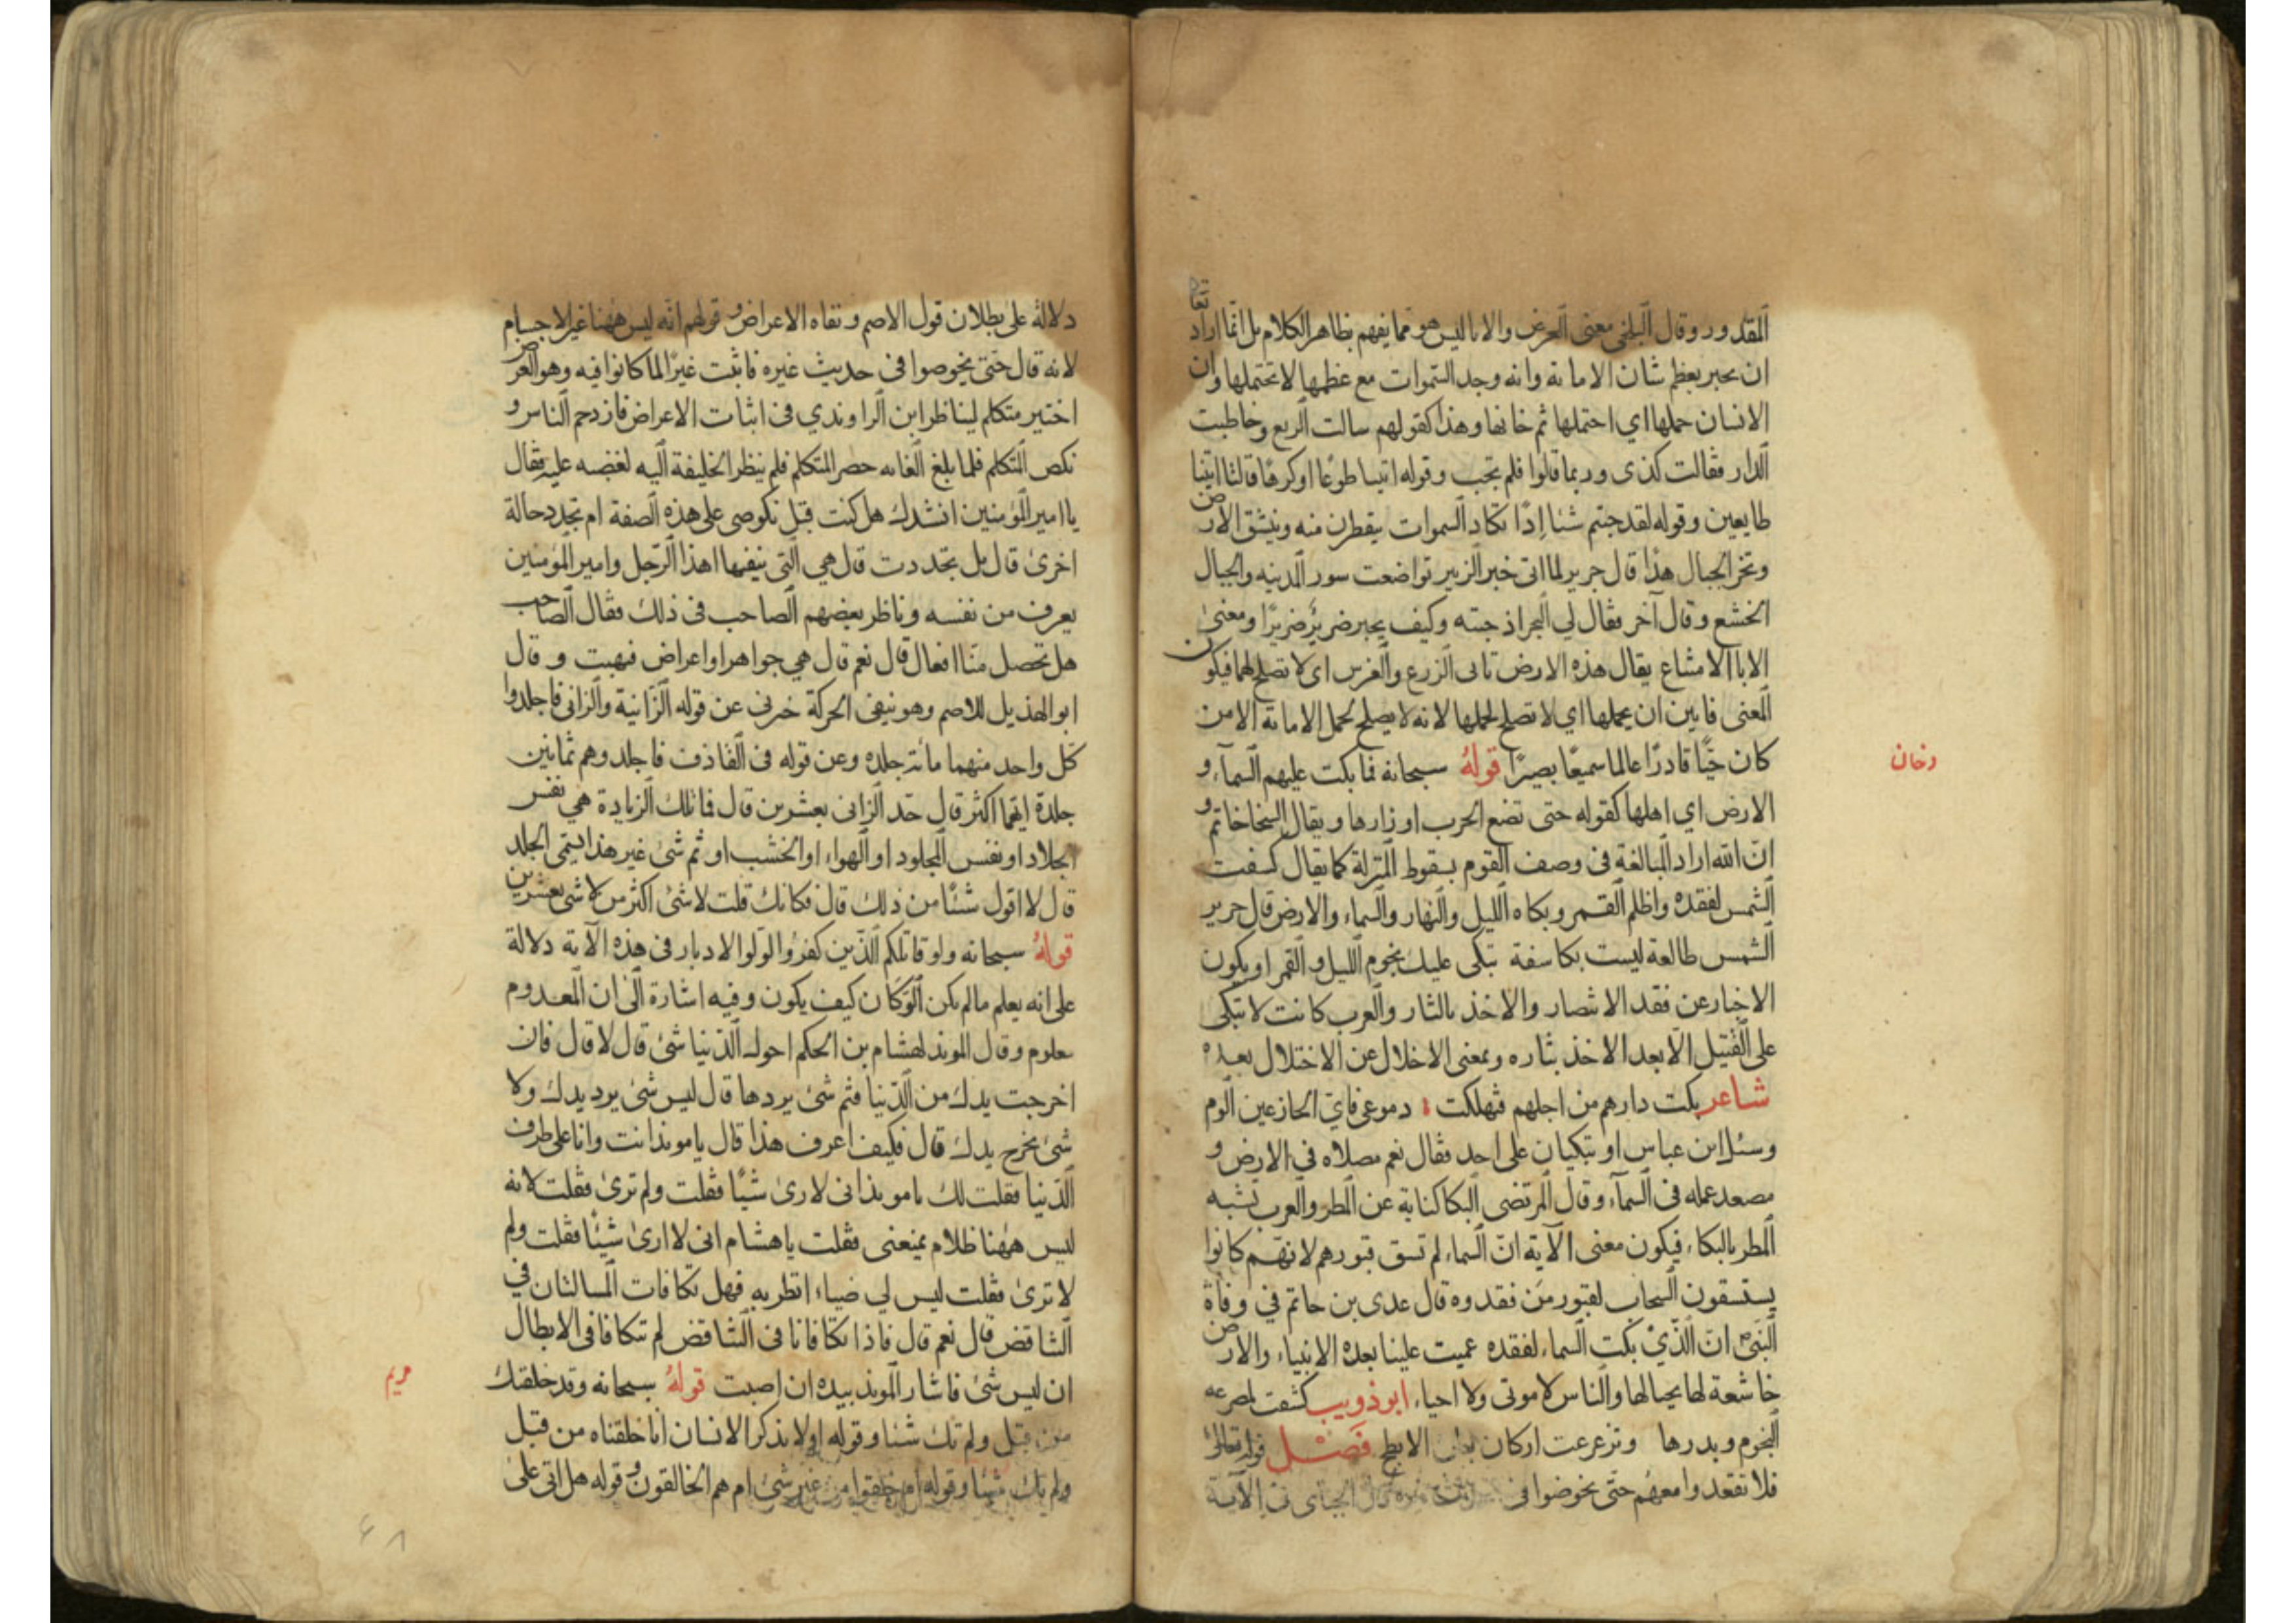 المقدور وقال البلخي معنى العرض والاباليس هو مما يفهم بظاهر الكلام بل انما اراد تعا
ان يخبر بعظم شان الامانة وانه وجد السموات مع عظمها لا تحتملها وان
الانسان حملها اي احتملها ثم خانها وهذا كقولهم سالت الربع وخاطبت
الدار فقالت كذى وربما قالوا فلم تجب وقوله اتيا طوعًا اوكرهًا قالتا اتينا
طايعين وقوله لقد جتم شئا اِدًا تكاد السموات يتفطرن منه وتنشق الارض
وتخر الجبال هذا قال جرير لما اتى خبر الزبير تواضعت سور المدينه والجبال
الخشع وقال آخر فقال لي البحر اذ جئته وكيف يجبر ضرير ضريرًا ومعنى
الابا الامتناع يقال هذه الارض تابى الزرع والغرس اى لا تصلح لهما فيكون
المعنى فابين ان يحملها اي لا تصلح لحملها لانه لا يصلح لحمل الامانة الا من
كان حيًا قادرًا عالما سميعًا بصيرًا قوله سبحانه فما بكت عليهم السمآء و
دخان
الارض اي اهلها كقوله حتى تضع الحرب اوزارها ويقال السخا خاتم و
ان الله اراد المبالغة فى وصف القوم بسقوط المنزلة كما يقال كسفت
الشمس لفقده واظلم القمر وبكاه الليل والنهار والسماء والارض قال جرير
الشمس طالعة ليست بكاسفة تبكى عليك نجوم الليل والقمر او يكون
الاخبار عن فقد الانتصار والاخذ بالثار والعرب كانت لا تبكى
على القتيل الا بعد الاخذ بثاره وبمعنى الاخلال عن الاختلال بعده
شاعر بكت دارهم من اجلهم فتهلكت دموعى فاي الجازعين الوم
وسئل ابن عباس او تبكيان على احد فقال نعم مصلاه فى الارض و
مصعد عمله فى السمآء وقال المرتضى البكا كناية عن المطر والعرب تشبه
المطر بالبكاء فيكون معنى الآية ان السماء لم تسق قبورهم لانهم كانوا
يستسقون السحاب لقبور من فقدوه قال عدى بن حاتم في وفاة
النبي ان الذي بكت السماء لفقده عميت علينا بعده الانبياء والارض
خاشعة لها يحيالها والناس لا موتى ولا احياء ابو ذويب كشفت لمصرعه
النجوم وبدرها وتزعزعت اركان الابطح فصل قوله تعالى
فلا تقعدوا معهم حتى يخوضوا فى حديث غيره قال الجبائى فى الآية
دلالة على بطلان قول الاصم ونفاه الاعراض وقولهم انه ليس ههنا غير الاجسام
لانه قال حتى يخوضوا فى حديث غيره فاثبت غيرًا لما كانوا فيه وهو العرض
اختير متكلم ليناظر ابن الراوندي فى اثبات الاعراض فازدحم الناس و
نكص المتكلم فلما بلغ الغايه حصر المتكلم فلم ينظر الخليفة اليه لغضبه عليه فقال
يا امير المؤمنين انشدك هل كنت قبل نكوصى على هذه الصفة ام تجدد حالة
اخرى قال بل تجددت قال هي التي ينفيها هذا الرجل وامير المؤمنين
يعرف من نفسه وناظر بعضهم الصاحب فى ذلك فقال الصاحب
هل تحصل منا افعال قال نعم قال هي جواهر او اعراض فبهت وقال
ابو الهذيل للاصم وهو ينفى الحركة خبرنى عن قوله الزانية والزانى فاجلدوا
كل واحد منهما مائة جلده وعن قوله فى القاذف فاجلدوهم ثمانين
جلدة ايهما اكثر قال حد الزانى بعشرين قال فاتلك الزيادة هي نفس
الجلاد او نفس المجلود او الهواء او الخشب او ثم شئ غير هذا يسمى الجلد
قال لا اقول شئًا من ذلك قال فكانك قلت لا شئ اكثر من لا شئ بعشرين
قوله سبحانه ولو قاتلكم الذين كفروا لولوا الادبار فى هذه الآية دلالة
على انه يعلم ما لم يكن ان لوكان كيف يكون وفيه اشارة الى ان المعدوم
معلوم وقال الموبذ لهشام بن الحكم احول الدنيا شئ قال لا قال فان
اخرجت يدك من الدنيا فثم شئ يردها قال ليس شئ يرد يدك ولا
شئ يخرج يدك قال فكيف اعرف هذا قال يا موبذ انت وانا على طرف
الدنيا فقلت لك يا موبذ انى لا ارى شيًا فقلت ولم ترى فقلت لانه
ليس ههنا ظلام يمنعنى فقلت يا هشام انى لا ارى شيئًا فقلت ولم
لا ترى فقلت ليس لي ضياء انظر به فهل تكافات المسالتان في
التناقض قال نعم قال فاذا تكافاتا فى التناقض لم تتكافا فى الابطال
ان ليس شئ فاشار الموبذ بيده ان اصبت قوله سبحانه وقد خلقتك
مريم
من قبل ولم تك شئا وقوله اولا يذكر الانسان انا خلقناه من قبل
ولم يك شئا وقوله ام خلقوا من غير شئ ام هم الخالقون وقوله هل اتى على
٤٨